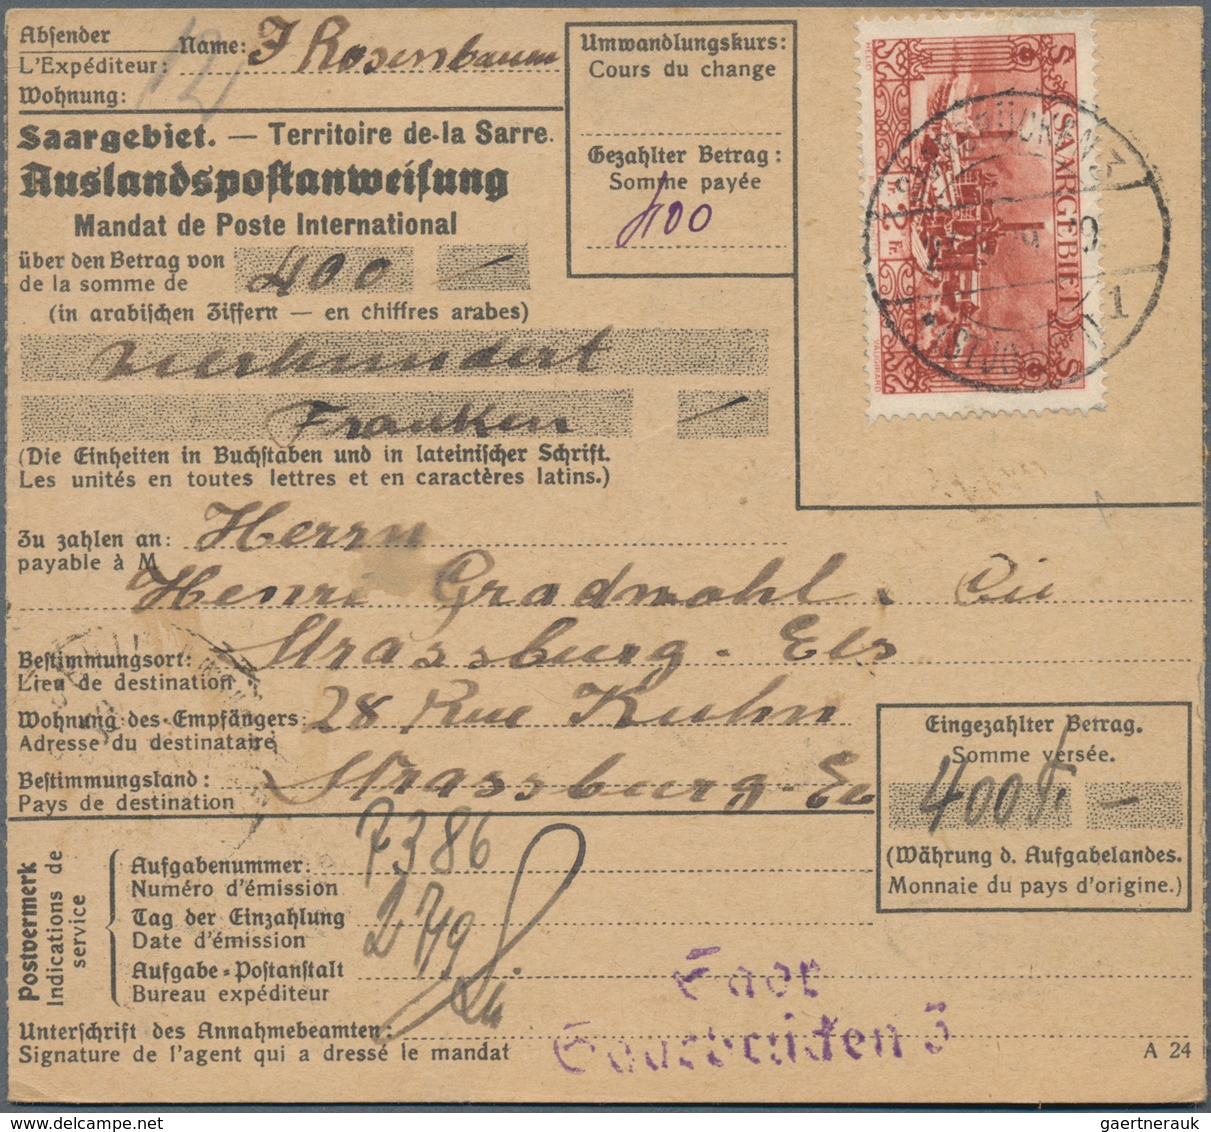 Absender
L'Expéditeur: Name: J Rosenbaum
Wohnung:
12
Saargebiet. — Territoire de la Sarre.
Auslandspostanweisung
Mandat de Poste International
über den Betrag von
de la somme de 400 —
(in arabischen Ziffern — en chiffres arabes)
vierhundert
Franken —
(Die Einheiten in Buchstaben und in lateinischer Schrift.
Les unités en toutes lettres et en caractères latins.)
Umwandlungskurs:
Cours du change
Gezahlter Betrag:
Somme payée
400
SAARGEBIET
2 Fr. 2 Fr.
HELIO VAUGIRARD
SAARBRÜCKEN 3
1
Zu zahlen an: Herrn
payable à M
Henri Gradwohl. Cie
Bestimmungsort: Strassburg. Els
Lieu de destination
Wohnung des Empfängers: 28 Rue Kuhn
Adresse du destinataire
Bestimmungsland: Strassburg-Els
Pays de destination
Eingezahlter Betrag.
Somme versée.
400 Fr. —
(Währung d. Aufgabelandes.
Monnaie du pays d'origine.)
Postvermerk
Indications de
service
Aufgabenummer: 7386
Numéro d'émission
Tag der Einzahlung
Date d'émission
Aufgabe-Postanstalt
Bureau expéditeur
Unterschrift des Annahmebeamten:
Signature de l'agent qui a dressé le mandat
Saar
Saarbrücken 3
A 24
gaertnerauk